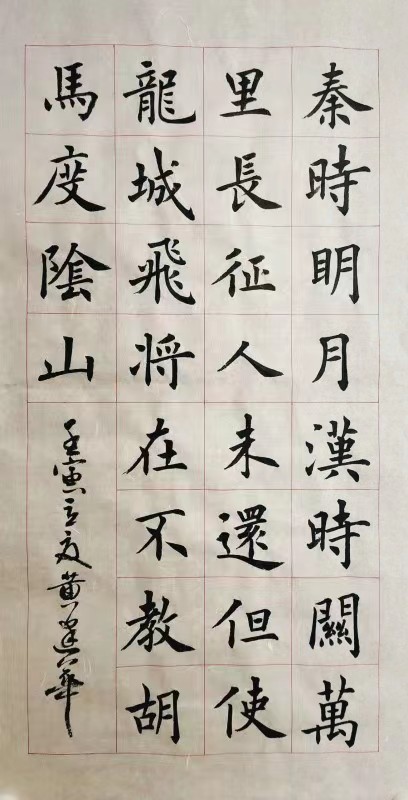 秦時明月漢時關萬
里長征人未還但使
龍城飛将在不教胡
馬度陰山
壬寅立夏黄建華